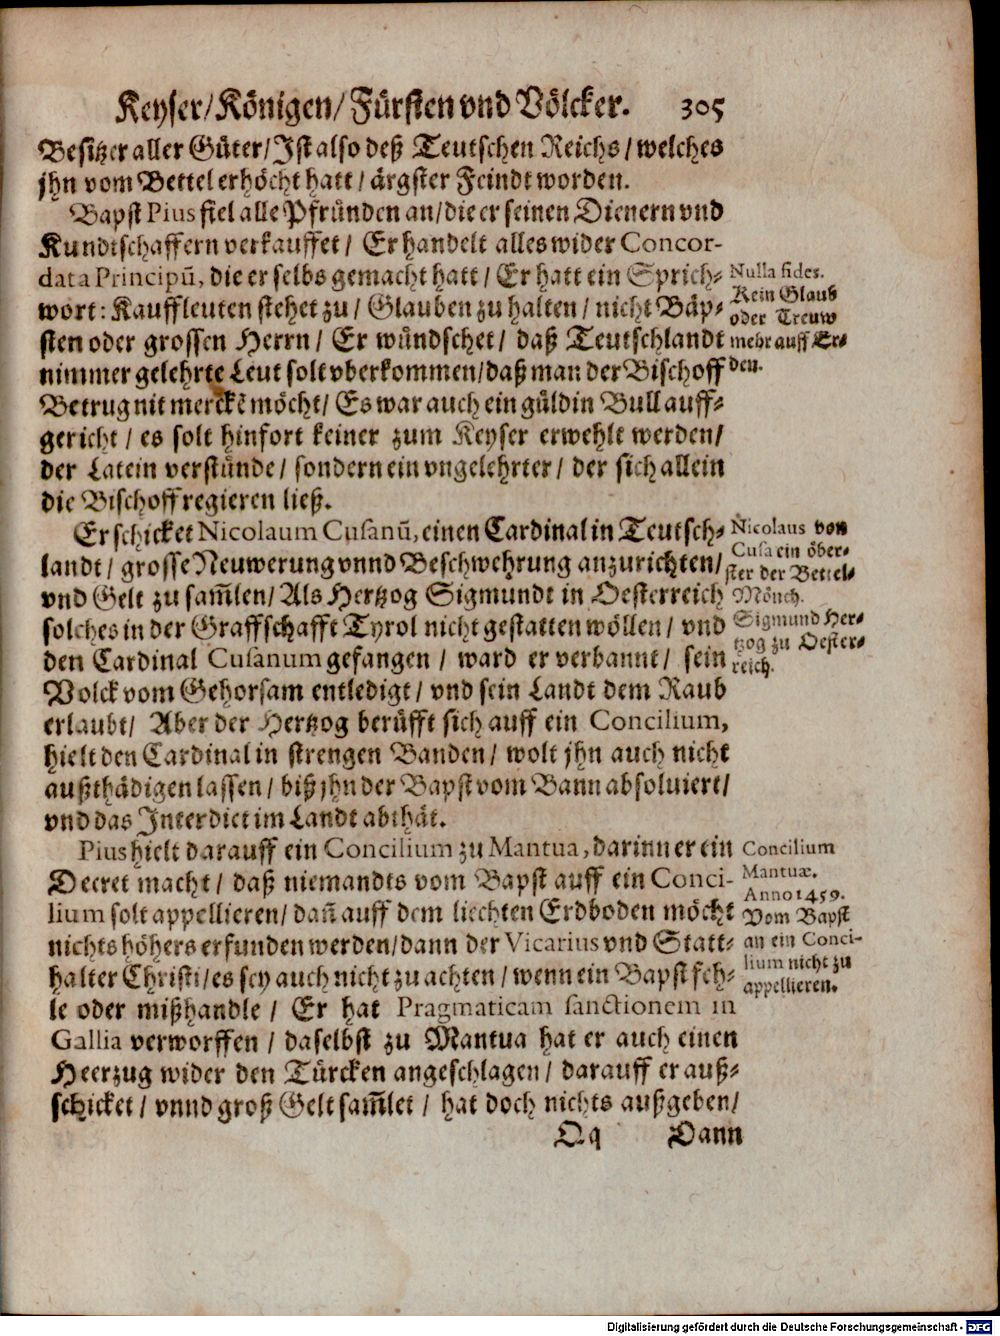 Keyser/Königen/Fürsten vnd Völcker. 305
Besitzer aller Güter/Ist also deß Teutschen Reichs/welches
jhn vom Bettel erhöcht hatt/ärgster Feindt worden.
Bapst Pius fiel alle Pfründen an/die er seinen Dienern vnd
Kundtschaffern verkauffet/ Er handelt alles wider Concor-
data Principū, die er selbs gemacht hatt/ Er hatt ein Sprich-
wort: Kauffleuten stehet zu/ Glauben zu halten/ nicht Bäp-
sten oder grossen Herrn/ Er wündschet/ daß Teutschlandt
nimmer gelehrte Leut solt vberkommen/daß man der Bischoff
Betrug nit merckē möcht/ Es war auch ein güldin Bull auff-
gericht/ es solt hinfort keiner zum Keyser erwehlt werden/
der Latein verstünde/ sondern ein vngelehrter/ der sich allein
die Bischoff regieren ließ.
Nulla fides.
Kein Glaub
oder Treuw
mehr auff Er-
den.
Er schicket Nicolaum Cusanū, einen Cardinal in Teutsch-
landt/ grosse Neuwerung vnnd Beschwehrung anzurichten/
vnd Gelt zu sam̄len/ Als Hertzog Sigmundt in Oesterreich
solches in der Graffschafft Tyrol nicht gestatten wöllen/ vnd
den Cardinal Cusanum gefangen/ ward er verbannt/ sein
Volck vom Gehorsam entledigt/ vnd sein Landt dem Raub
erlaubt/ Aber der Hertzog berüfft sich auff ein Concilium,
hielt den Cardinal in strengen Banden/ wolt jhn auch nicht
außthädigen lassen/ biß jhn der Bapst vom Bann absoluiert/
vnd das Interdict im Landt abthät.
Nicolaus von
Cusa ein öber-
ster der Bettel-
Mönch.
Sigmund Her-
tzog zu Oester-
reich.
Pius hielt darauff ein Concilium zu Mantua, darinn er ein
Decret macht/ daß niemandts vom Bapst auff ein Conci-
lium solt appellieren/ dañ auff dem liechten Erdboden möcht
nichts höhers erfunden werden/dann der Vicarius vnd Statt-
halter Christi/es sey auch nicht zu achten/ wenn ein Bapst feh-
le oder mißhandle/ Er hat Pragmaticam sanctionem in
Gallia verworffen/ daselbst zu Mantua hat er auch einen
Heerzug wider den Türcken angeschlagen/ darauff er auß-
schicket/ vnnd groß Gelt sam̄let/ hat doch nichts außgeben/
Concilium
Mantuæ.
Anno 1459.
Vom Bapst
an ein Conci-
lium nicht zu
appellieren.
Qq Dann
Digitalisierung gefördert durch die Deutsche Forschungsgemeinschaft - DFG